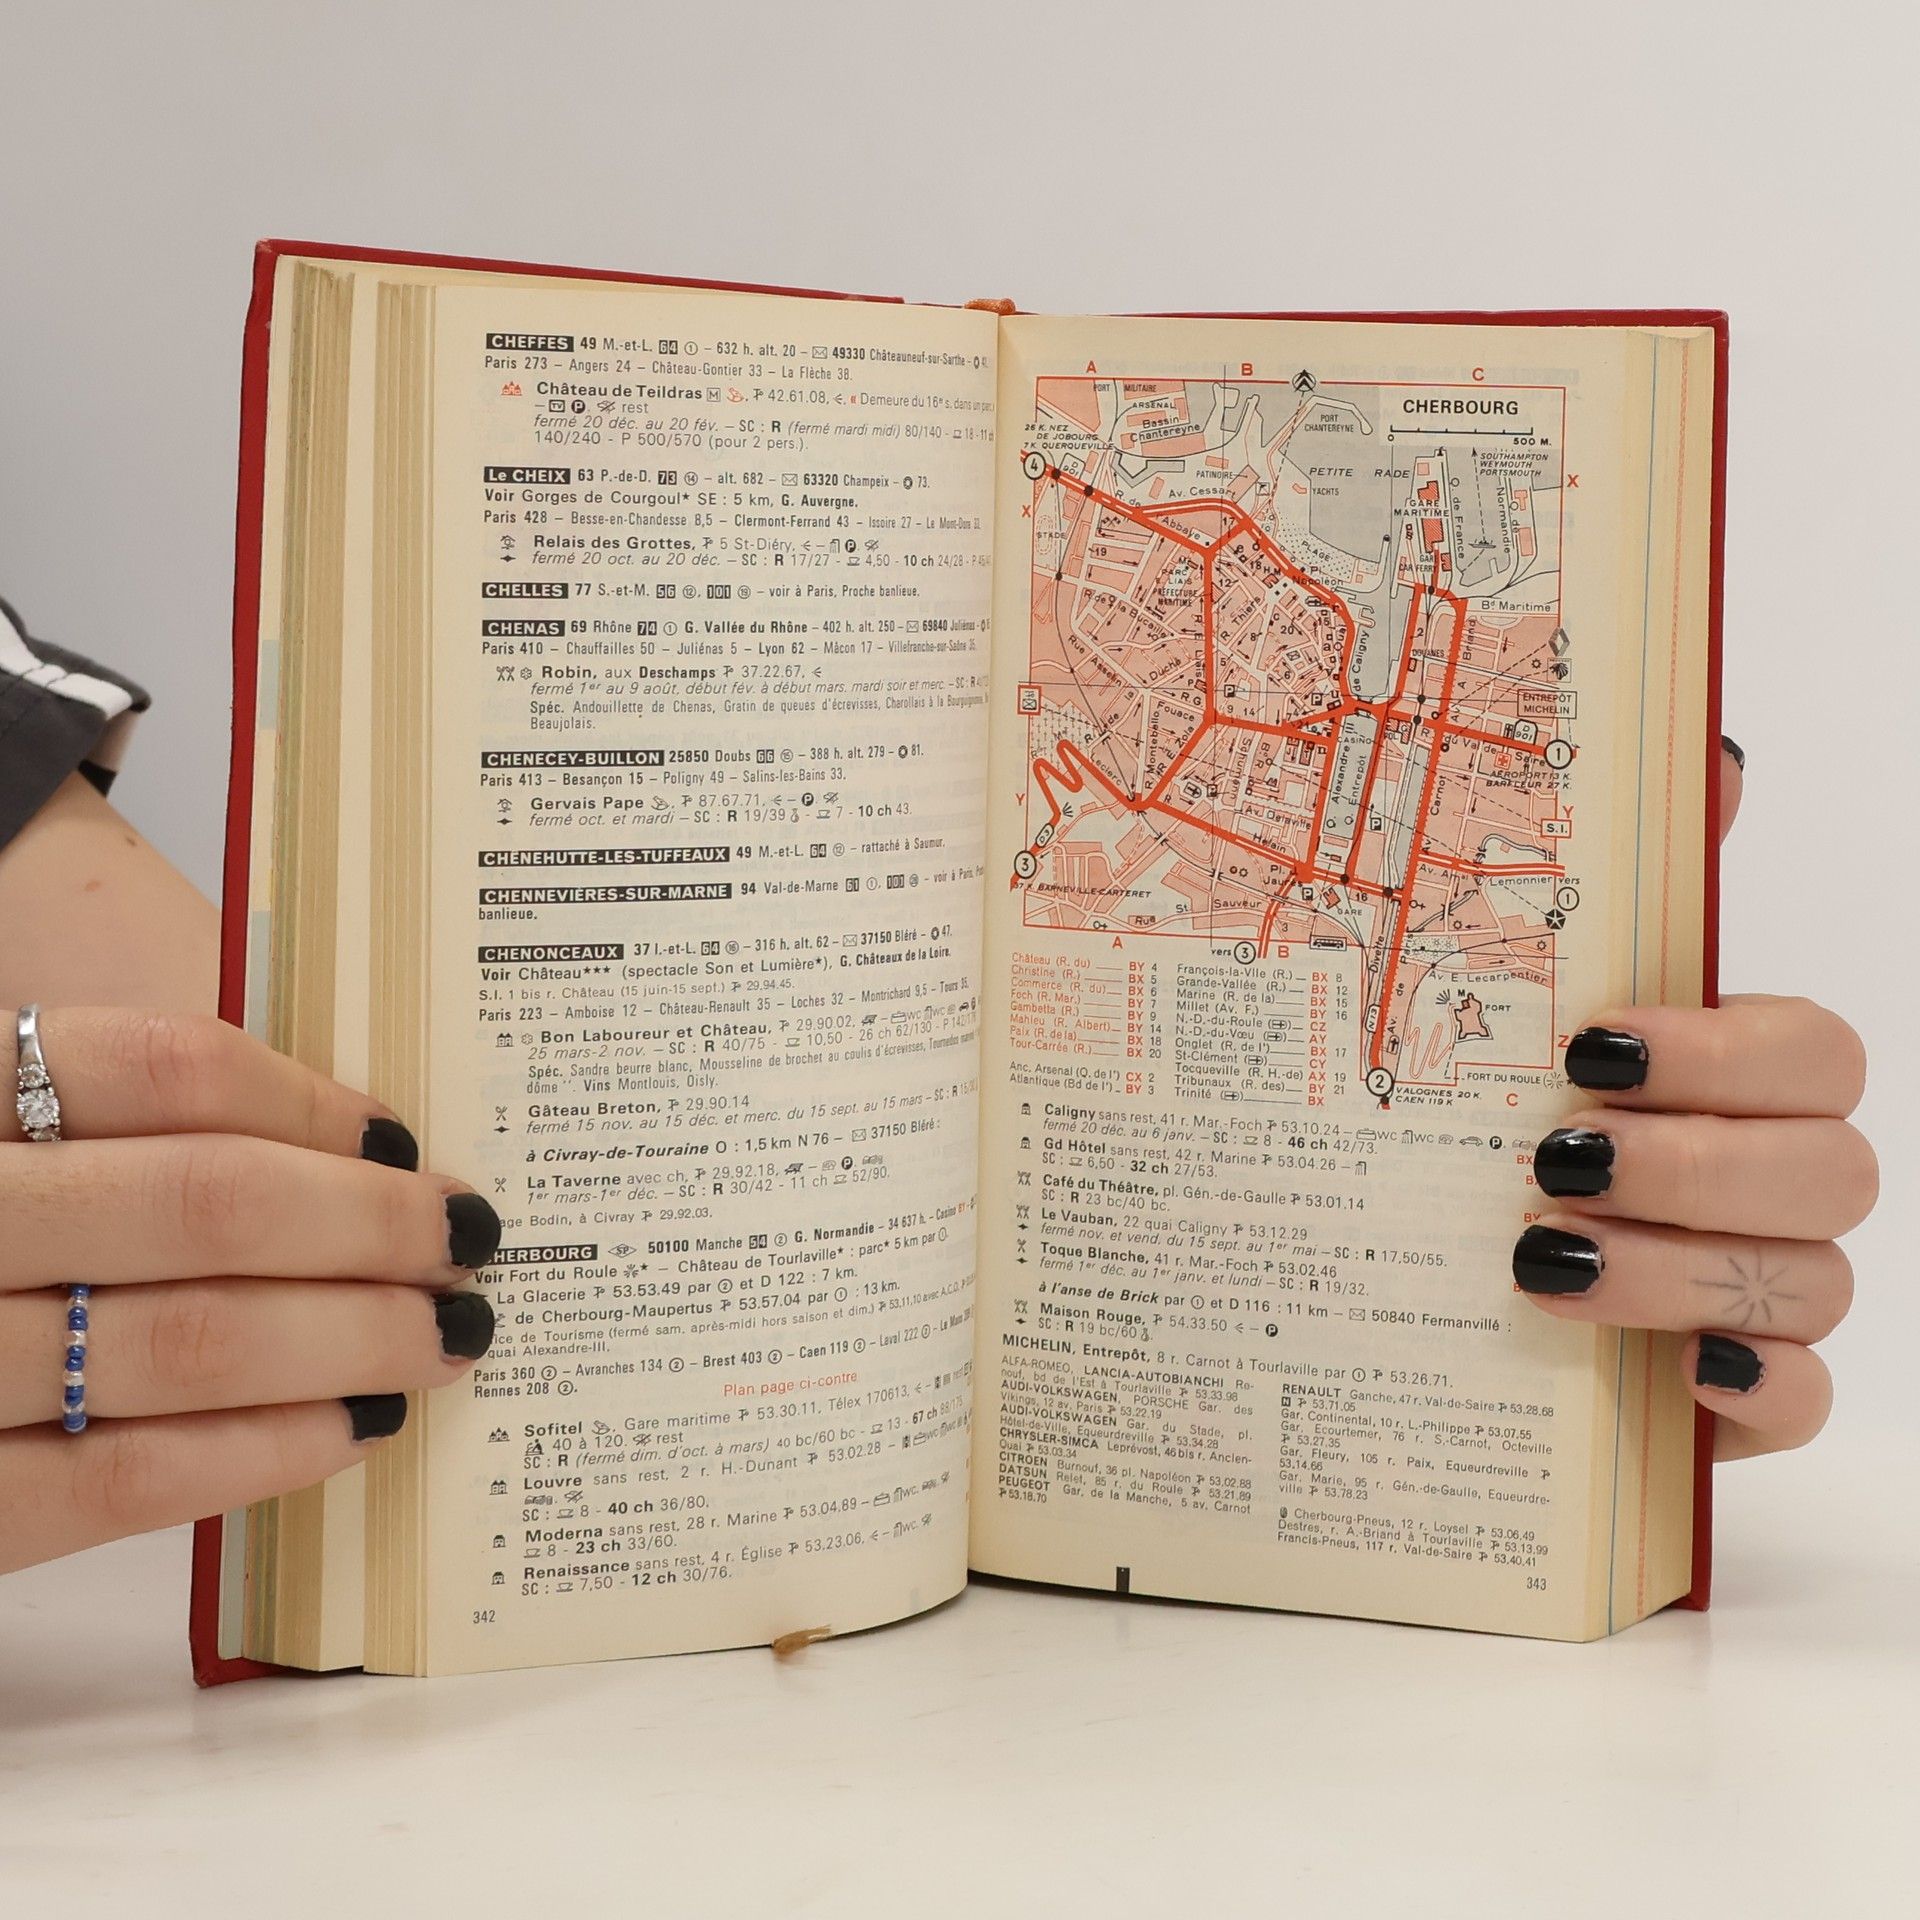 CHEFFES 49 M.-et-L. 64 ① – 632 h. alt. 20 – ✉ 49330 Châteauneuf-sur-Sarthe –
Paris 273 – Angers 24 – Château-Gontier 33 – La Flèche 38.
Château de Teildras M 42.61.08, « Demeure du 16e s. dans un
– TV P, rest
fermé 20 déc. au 20 fév. – SC : R (fermé mardi midi) 80/140 - 18 -
140/240 - P 500/570 (pour 2 pers.).
Le CHEIX 63 P.-de-D. 73 ⑭ – alt. 682 – ✉ 63320 Champeix – 73.
Voir Gorges de Courgoul* SE : 5 km, G. Auvergne.
Paris 428 – Besse-en-Chandesse 8,5 – Clermont-Ferrand 43 – Issoire 27 – Le Mont-Dore
Relais des Grottes, 5 St-Diéry, – P
fermé 20 oct. au 20 déc. – SC : R 17/27 - 4,50 - 10 ch 24/28 -
CHELLES 77 S.-et-M. 56 ⑫, 101 ⑲ – voir à Paris, Proche banlieue.
CHENAS 69 Rhône 74 ① G. Vallée du Rhône – 402 h. alt. 250 – ✉ 69840 Juliénas –
Paris 410 – Chauffailles 50 – Juliénas 5 – Lyon 62 – Mâcon 17 – Villefranche-sur-Saône 35.
Robin, aux Deschamps 37.22.67,
fermé 1er au 9 août, début fév. à début mars, mardi soir et merc. – SC : R
Spéc. Andouillette de Chenas, Gratin de queues d'écrevisses, Charollais à la Bourguignonne,
Beaujolais.
CHENECEY-BUILLON 25850 Doubs 66 ⑮ – 388 h. alt. 279 – 81.
Paris 413 – Besançon 15 – Poligny 49 – Salins-les-Bains 33.
Gervais Pape 87.67.71, – P.
fermé oct. et mardi – SC : R 19/39 - 7 - 10 ch 43.
CHENEHUTTE-LES-TUFFEAUX 49 M.-et-L. 64 ⑫ – rattaché à Saumur.
CHENNEVIÈRES-SUR-MARNE 94 Val-de-Marne 61 ①, 101 – voir à Paris,
banlieue.
CHENONCEAUX 37 I.-et-L. 64 ⑯ – 316 h. alt. 62 – ✉ 37150 Bléré – 47.
Voir Château*** (spectacle Son et Lumière*), G. Châteaux de la Loire.
S.I. 1 bis r. Château (15 juin-15 sept.) 29.94.45.
Paris 223 – Amboise 12 – Château-Renault 35 – Loches 32 – Montrichard 9,5 – Tours 35.
Bon Laboureur et Château, 29.90.02, – wc wc
25 mars-2 nov. – SC : R 40/75 - 10,50 - 26 ch 62/130 -
Spéc. Sandre beurre blanc, Mousseline de brochet au coulis d'écrevisses,
dôme ". Vins Montlouis, Oisly.
Gâteau Breton, 29.90.14
fermé 15 nov. au 15 déc. et merc. du 15 sept. au 15 mars – SC : R
à Civray-de-Touraine O : 1,5 km N 76 – ✉ 37150 Bléré :
La Taverne avec ch, 29.92.18, – P.
1er mars-1er déc. – SC : R 30/42 - 11 ch 52/90.
age Bodin, à Civray 29.92.03.
HERBOURG SP 50100 Manche 54 ② G. Normandie – 34 637 h. – Casino BY
Voir Fort du Roule * – Château de Tourlaville* : parc* 5 km par ①.
La Glacerie 53.53.49 par ② et D 122 : 7 km.
de Cherbourg-Maupertus 53.57.04 par ① : 13 km.
ice de Tourisme (fermé sam. après-midi hors saison et dim.) 53.11.10 avec A.C.O.
quai Alexandre-III.
Paris 360 ② – Avranches 134 ② – Brest 403 ② – Caen 119 ② – Laval 222 ② – Le Mans
Rennes 208 ②.
Plan page ci-contre
Sofitel, Gare maritime 53.30.11, Télex 170613,
40 à 120. rest
SC : R (fermé dim. d'oct. à mars) 40 bc/60 bc - 13 - 67 ch 88/175
Louvre sans rest, 2 r. H.-Dunant 53.02.28 – wc wc
SC : 8 - 40 ch 36/80.
Moderna sans rest, 28 r. Marine 53.04.89 – wc.
8 - 23 ch 33/60.
Renaissance sans rest, 4 r. Église 53.23.06, – wc.
SC : 7,50 - 12 ch 30/76.
342
A B C
CHERBOURG
0 500 M.
PORT MILITAIRE
ARSENAL
Bassin
Chantereyne
PORT
CHANTEREYNE
26 K. NEZ
DE JOBOURG
7 K. QUERQUEVILLE
SOUTHAMPTON
WEYMOUTH
PORTSMOUTH
PETITE RADE
PATINOIRE
YACHTS
4
D 901
X X
R. de l'Abbaye
Av. Cessart
GARE
MARITIME
Q. de France
Q. de Normandie
STADE
PLAGE
GARE
CAR FERRY
PARC
E. LIAIS
PRÉFECTURE
MARITIME
Pl. Napoléon
H
Bd Maritime
R. de la Bucaille
R. Thiers
Rue Asselin
Duché
Quai de Caligny
DOUANES
Av. A. Briand
ENTREPÔT
MICHELIN
R. G. Fouace
R. Montebello
R. E. Zola
CASINO
R. du Val de Saire
D 901
1
AÉROPORT 13 K.
BARFLEUR 27 K.
Leclerc
Y Y
S.I.
Alexandre III
Entrepôt
Carnot
Av. Delaville
Helain
D 3
3
37 K. BARNEVILLE-CARTERET
Pl.
Jaurès
Av. Amal
Lemonnier
vers
1
GARE
Rue St. Sauveur
vers 3
A B
Divette
Av. de Paris
Av. E. Lecarpentier
FORT
N 13
Z
FORT DU ROULE
2
VALOGNES 20 K.
CAEN 119 K
C
Château (R. du) BY 4
Christine (R.) BX 5
Commerce (R. du) BX 6
Foch (R. Mar.) BY 7
Gambetta (R.) BY 9
Mahieu (R. Albert) BY 14
Paix (R. de la) BX 18
Tour-Carrée (R.) BX 20
Anc. Arsenal (Q. de l') CX 2
Atlantique (Bd de l') BY 3
François-la-Vlle (R.) BX 8
Grande-Vallée (R.) BX 12
Marine (R. de la) BX 15
Millet (Av. F.) BY 16
N.-D.-du-Roule CZ
N.-D.-du-Vœu AY
Onglet (R. de l') BX 17
St-Clément CY
Tocqueville (R. H.-de) AX 19
Tribunaux (R. des) BY 21
Trinité BX
Caligny sans rest, 41 r. Mar.-Foch 53.10.24 – wc wc P.
fermé 20 déc. au 6 janv. – SC : 8 - 46 ch 42/73. BX
Gd Hôtel sans rest, 42 r. Marine 53.04.26 –
SC : 6,50 - 32 ch 27/53.
Café du Théâtre, pl. Gén.-de-Gaulle 53.01.14
SC : R 23 bc/40 bc. BY
Le Vauban, 22 quai Caligny 53.12.29
fermé nov. et vend. du 15 sept. au 1er mai – SC : R 17,50/55.
Toque Blanche, 41 r. Mar.-Foch 53.02.46
fermé 1er déc. au 1er janv. et lundi – SC : R 19/32.
à l'anse de Brick par ① et D 116 : 11 km – ✉ 50840 Fermanville :
Maison Rouge, 54.33.50 – P
SC : R 19 bc/60.
MICHELIN, Entrepôt, 8 r. Carnot à Tourlaville par ① 53.26.71.
ALFA-ROMEO, LANCIA-AUTOBIANCHI Re-
nouf, bd de l'Est à Tourlaville 53.33.98
AUDI-VOLKSWAGEN PORSCHE Gar. des
Vikings, 12 av. Paris 53.22.19
AUDI-VOLKSWAGEN Gar. du Stade, pl.
Hôtel-de-Ville, Equeurdreville 53.34.28
CHRYSLER-SIMCA Leprévost, 46 bis r. Ancien-
Quai 53.03.34
CITROEN Burnouf, 36 pl. Napoléon 53.02.88
DATSUN Relet, 85 r. du Roule 53.21.89
PEUGEOT Gar. de la Manche, 5 av. Carnot
53.18.70
RENAULT Ganche, 47 r. Val-de-Saire 53.28.68
N 53.71.05
Gar. Continental, 10 r. L.-Philippe 53.07.55
Gar. Ecourtemer, 76 r. S.-Carnot, Octeville
53.27.35
Gar. Fleury, 105 r. Paix, Equeurdreville
53.14.66
Gar. Marie, 95 r. Gén.-de-Gaulle, Equeurdre-
ville 53.78.23
Cherbourg-Pneus, 12 r. Loysel 53.06.49
Destres, r. A.-Briand à Tourlaville 53.13.99
Francis-Pneus, 117 r. Val-de-Saire 53.40.41
343